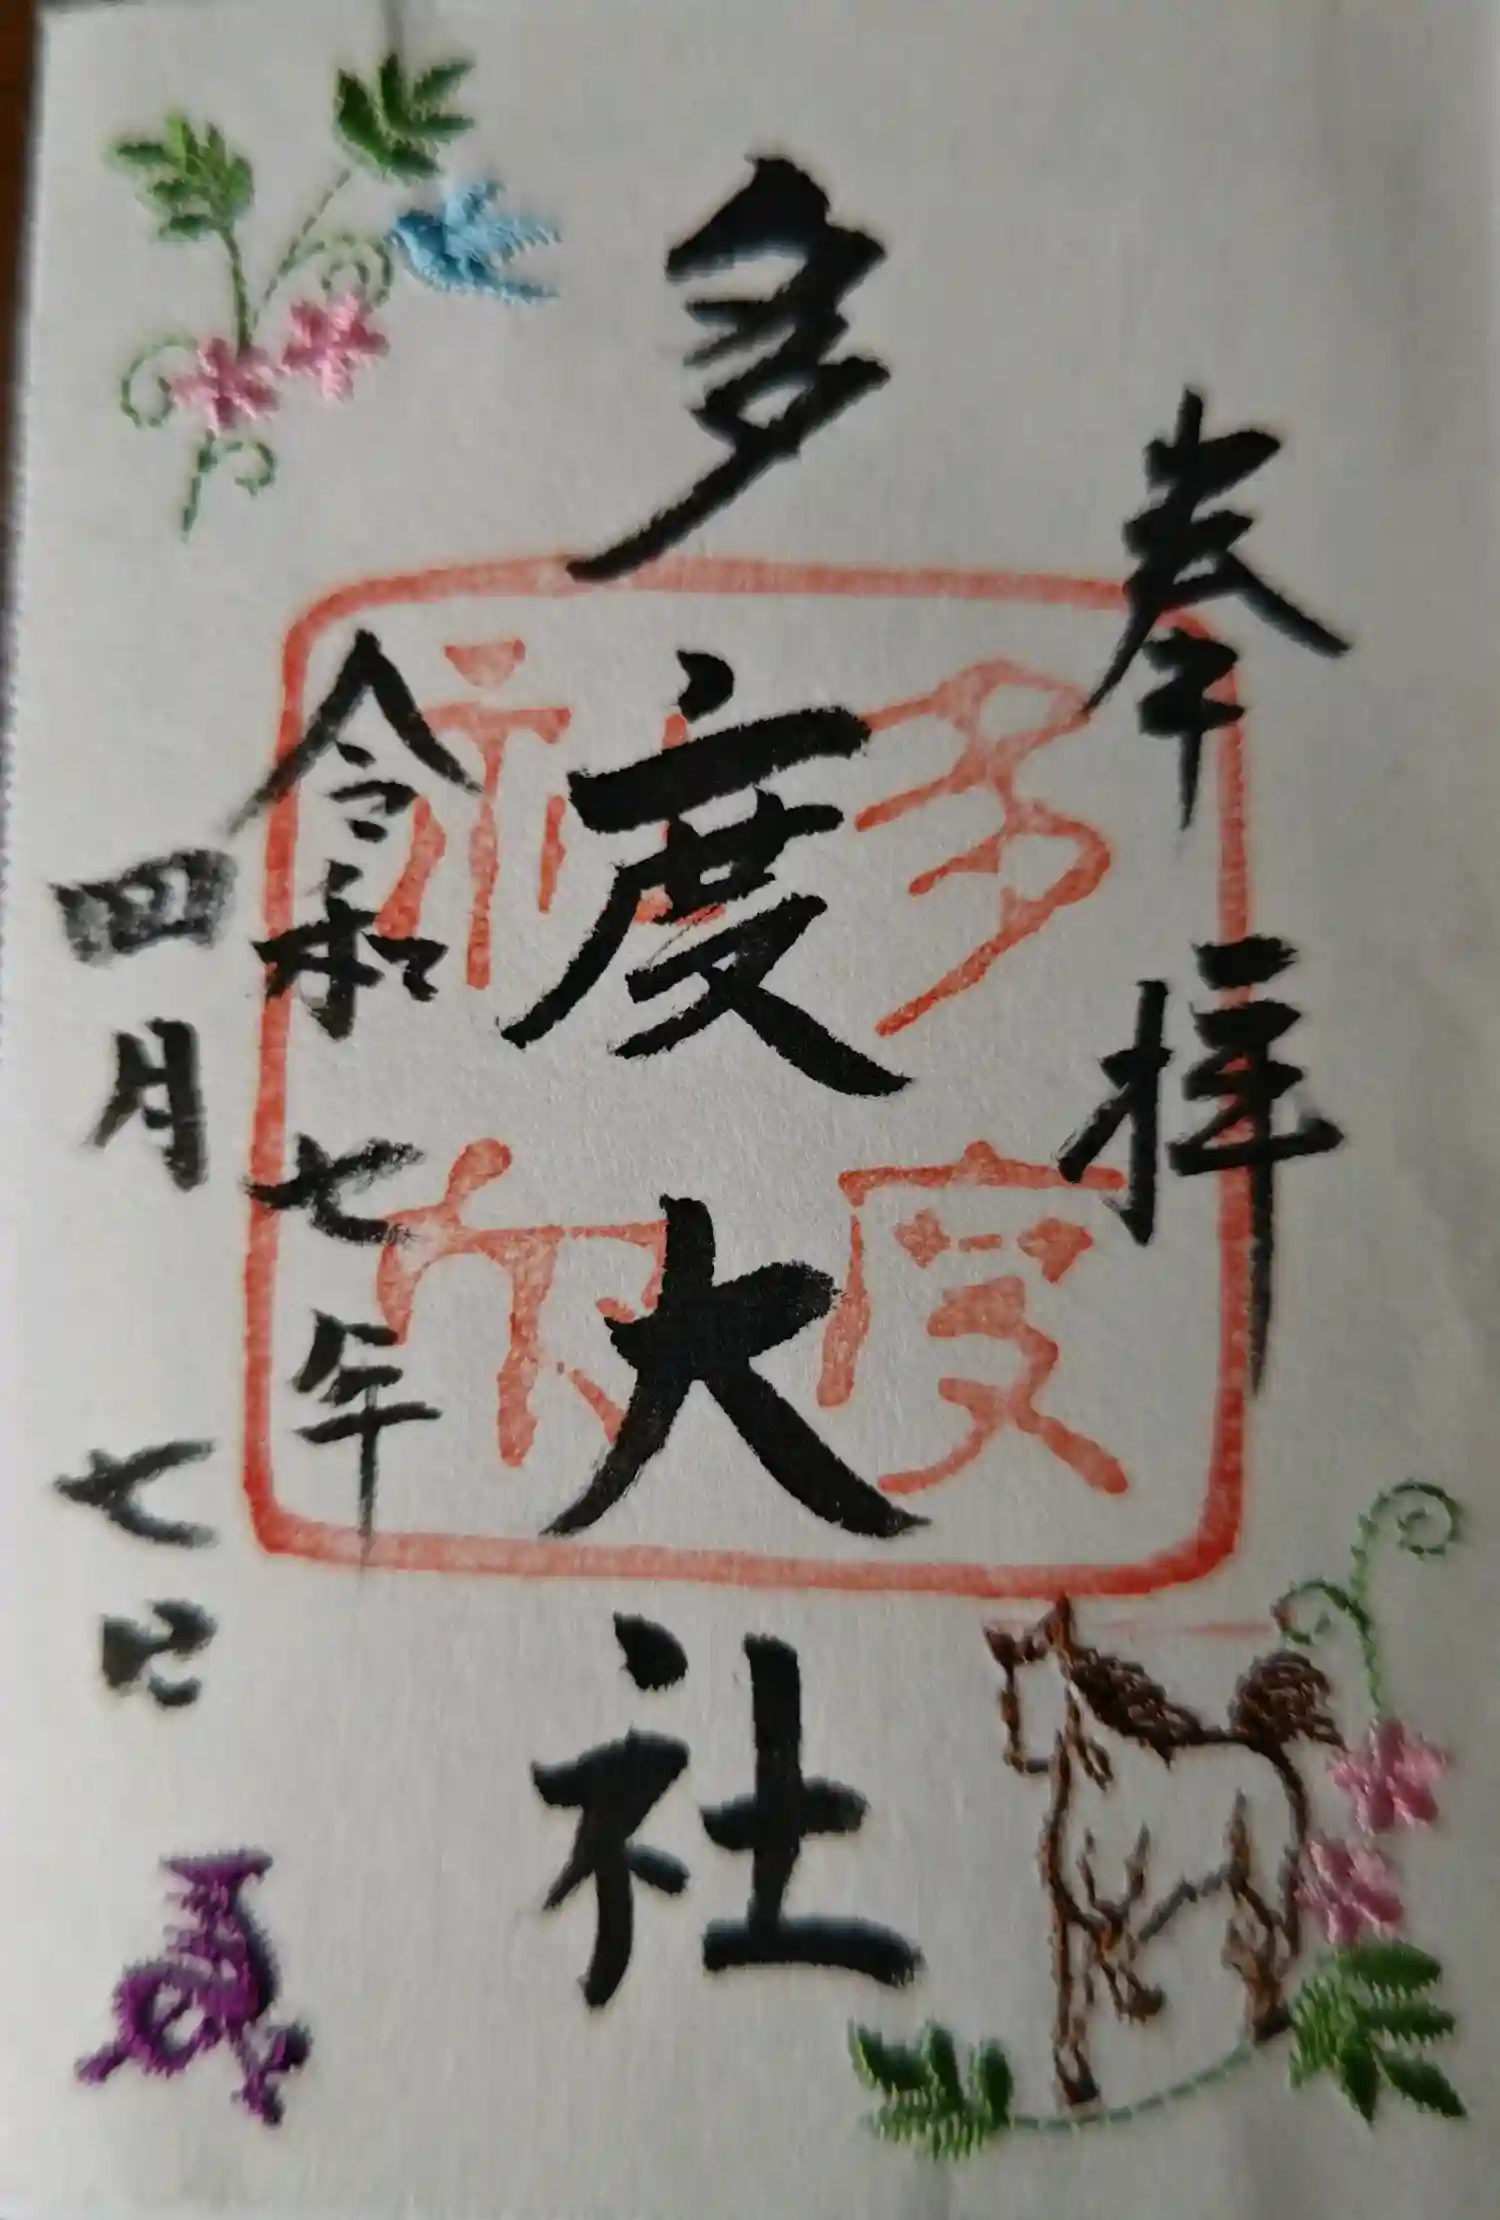 奉拝
多度大社
令和七年
四月七日
多度
神社